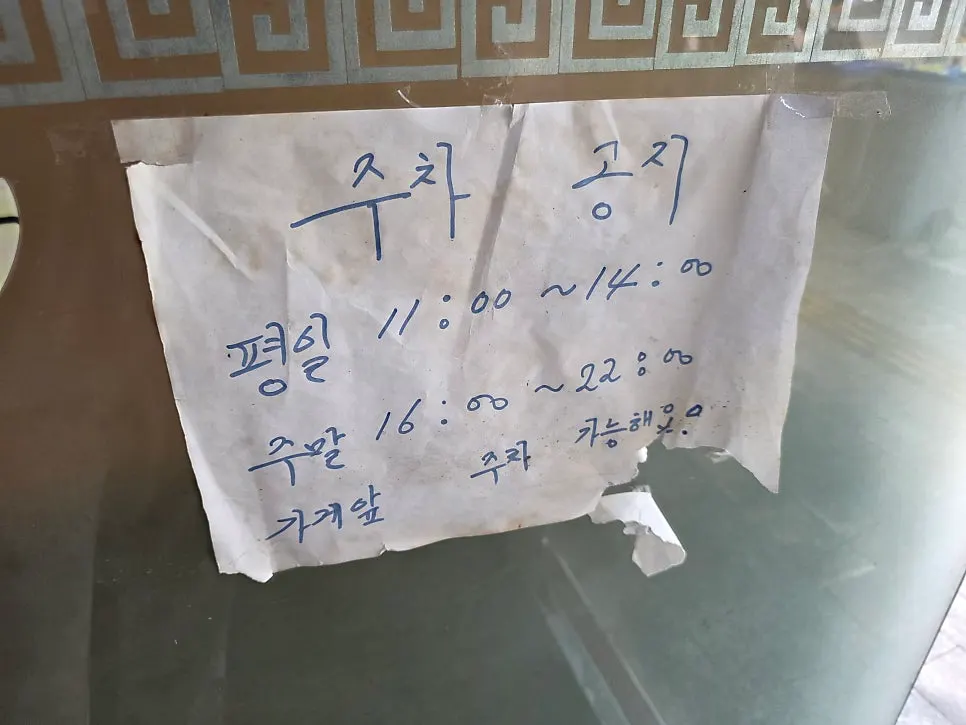 주차 공지
평일 11:00 ~ 14:00
주말 16:00 ~ 22:00
가게앞 주차 가능해요.